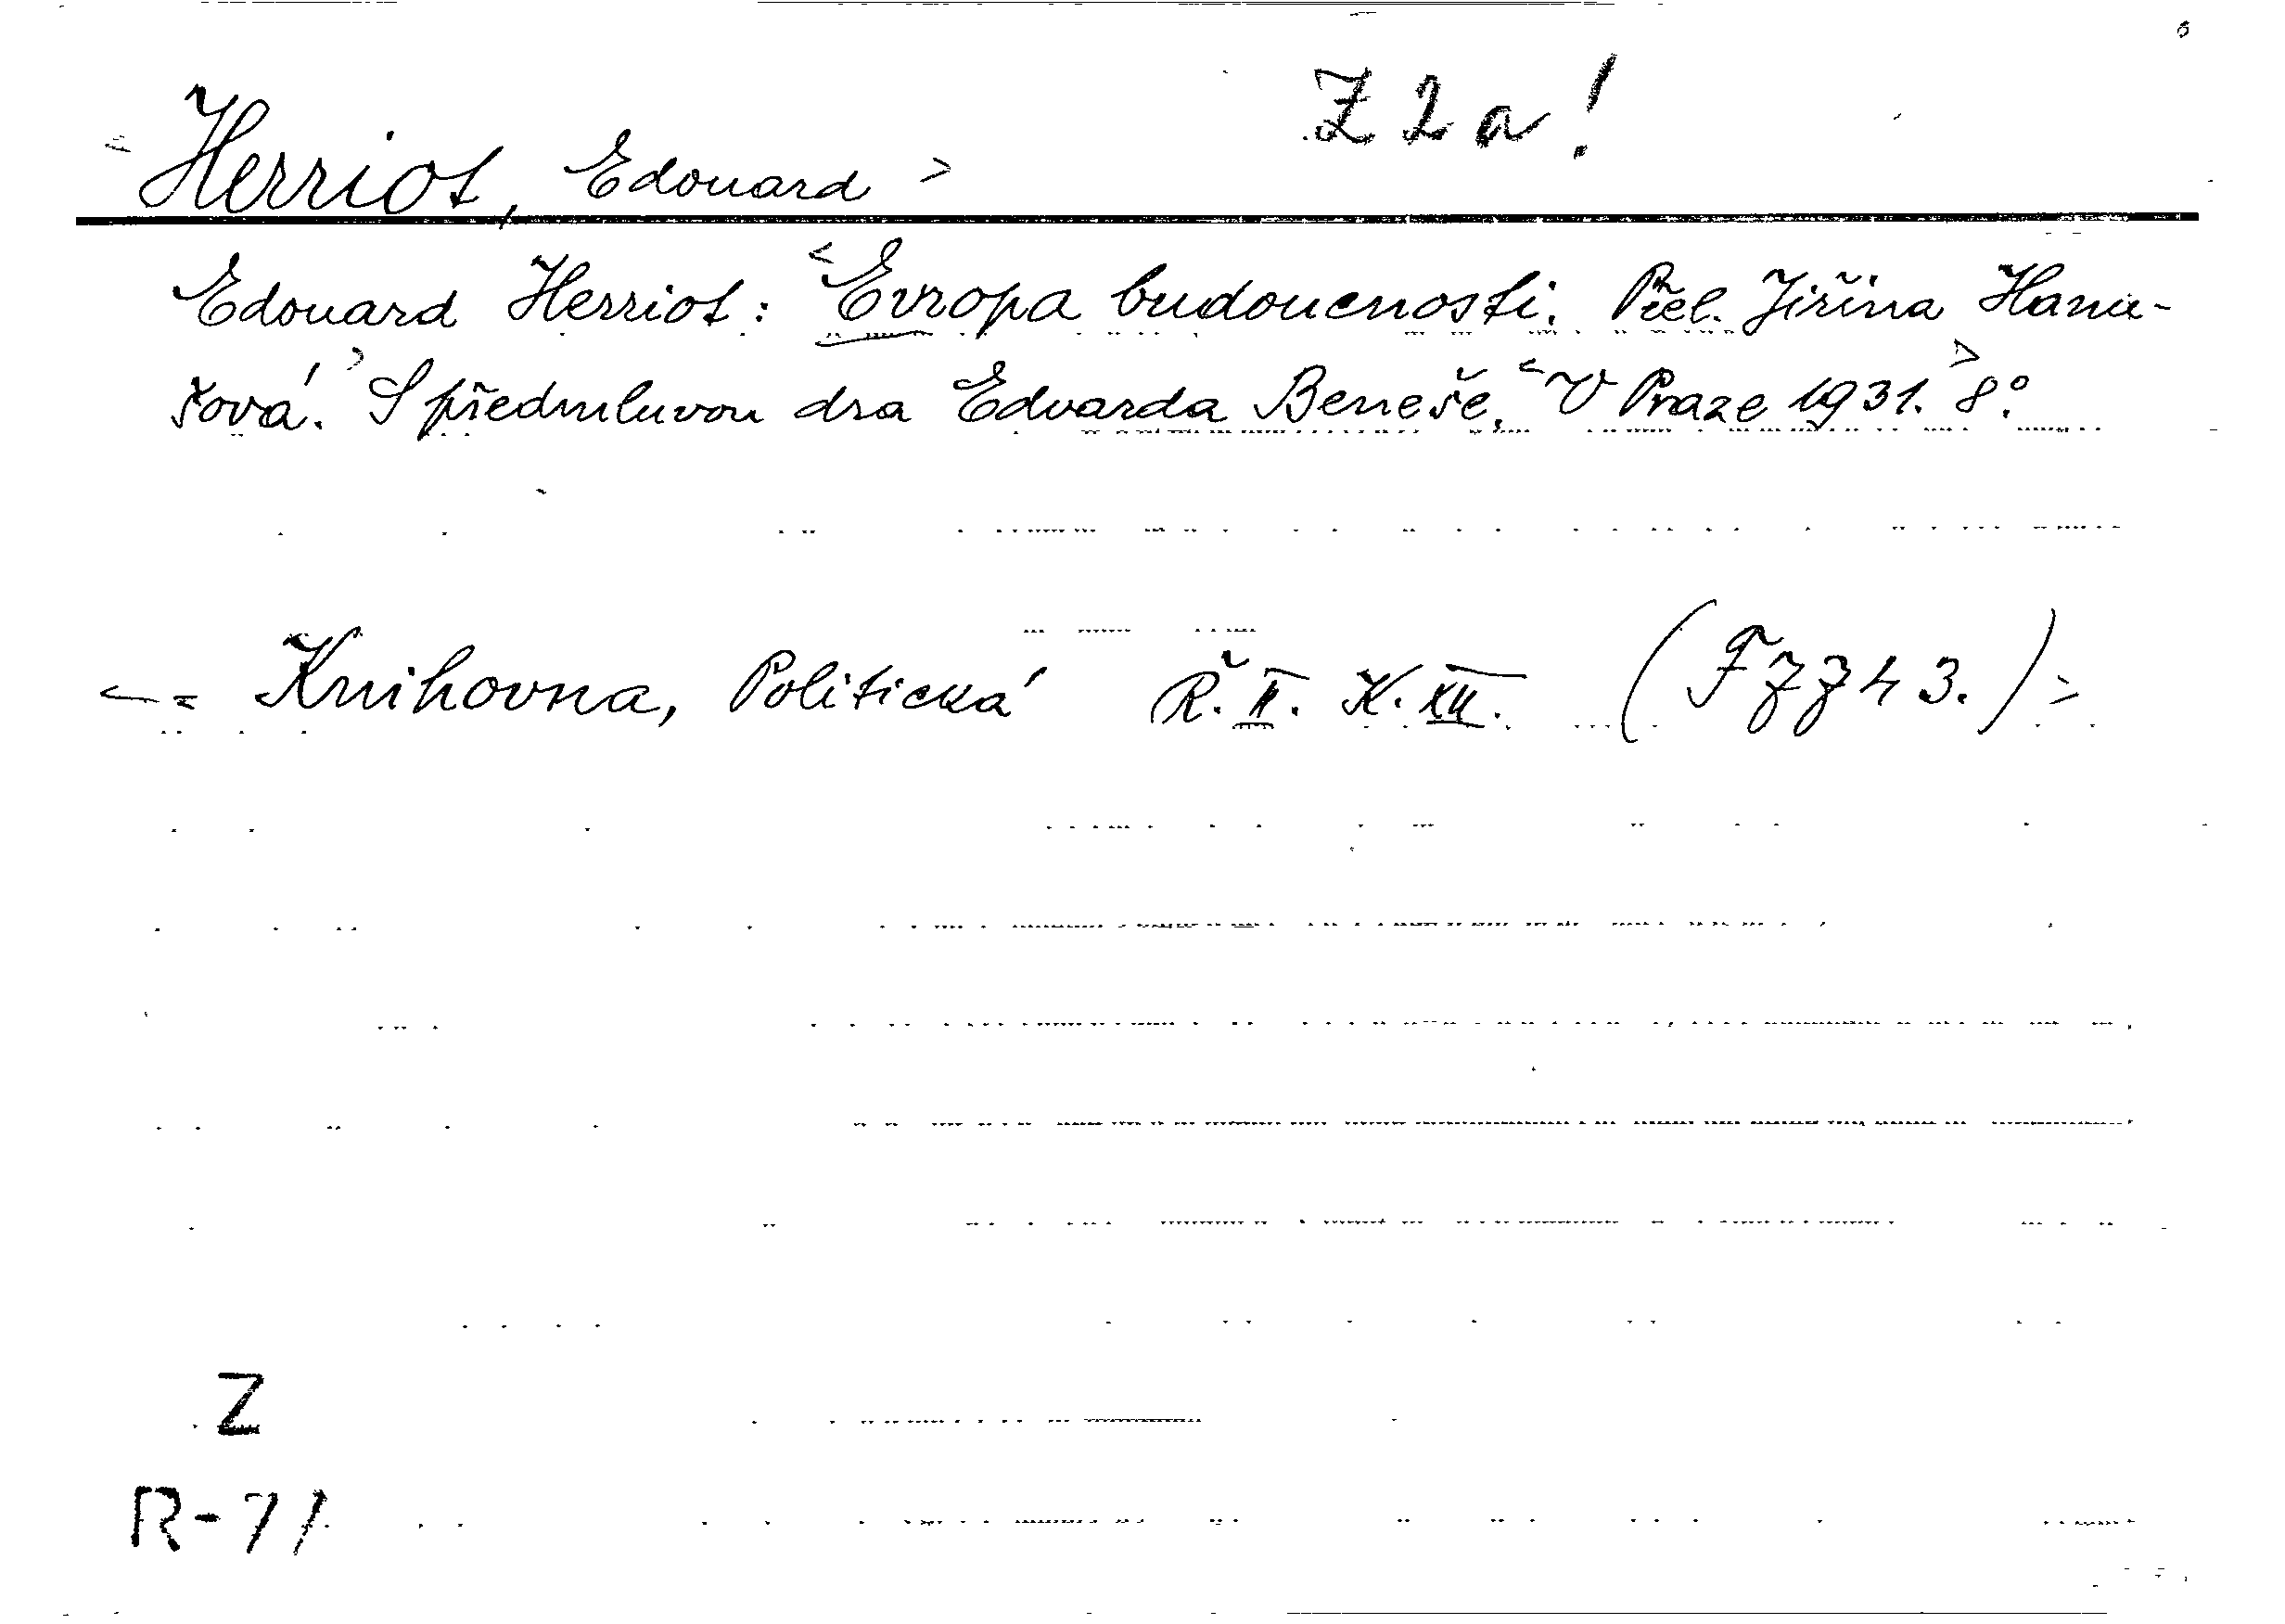 Z 2 a !
Herriot, Edouard >
Edouard Herriot: <Evropa budoucnosti. Přel. Jiřina Hanu-
šová.> S předmluvou dra Edvarda Beneše. <V Praze 1931.> 8°.
<= Knihovna, Politická Ř. II. K. XII. (F 7743.) >
Z
R-71